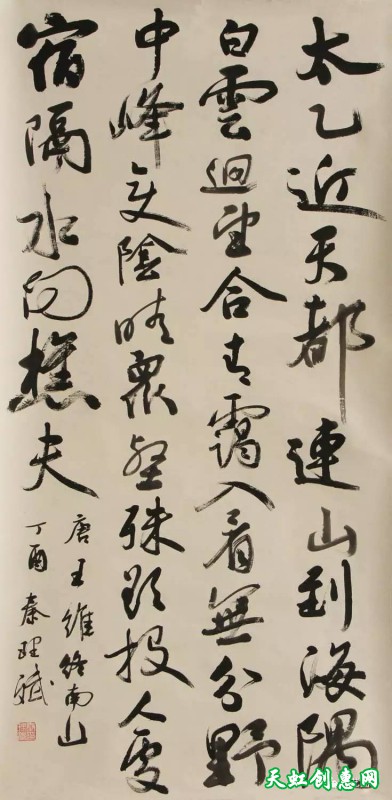 太乙近天都連山到海隅
白雲迴望合青靄入看無分野
中峰變陰晴衆壑殊欲投人處
宿隔水問樵夫
唐王維終南山
丁酉秦理斌
天虹创惠网